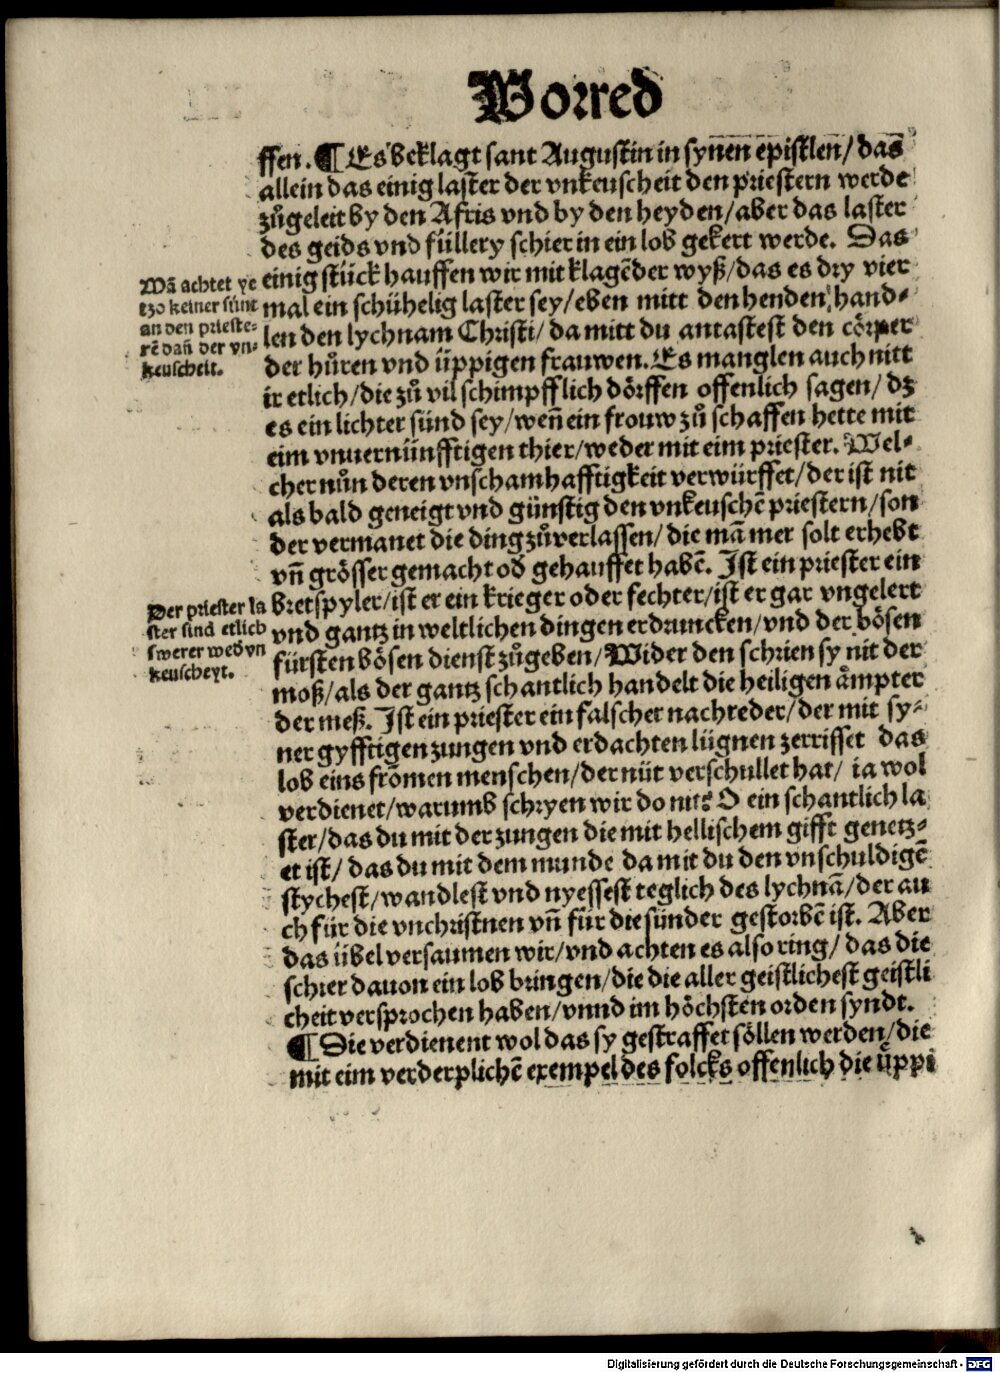 Vorred
ffen. ¶ Es beklagt sant Augustin in synen epistlen/ das
allein das einig laster der vnkeuscheit den priestern werde
zůgeleit by den Afris vnd by den heyden/ aber das laster
des geids vnd füllery schier in ein lob gekert werde. Das
einig stück hauffen wir mit klagēder wyß/ das es dry vier
mal ein schühelig laster sey/ eben mitt den henden hand⸗
len den lychnam Christi/ da mitt du antastest den cörper
der hůren vnd üppigen frauwen. Es manglen auch nitt
ir etlich/ die zů vil schimpfflich dörffen offenlich sagen/ dz
es ein lichter sünd sey/ weñ ein frouw zů schaffen hette mit
eim vnuernünfftigen thier/ weder mit eim priester. Wel⸗
cher nůn deren vnschamhafftigkeit verwürffet/ der ist nit
als bald geneigt vnd günstig den vnkeuschē priestern/ son
der vermanet die ding zůverlassen/ die mā mer solt erhebt
vñ grösser gemacht od gehauffet habē. Ist ein priester ein
bretspyler/ ist er ein krieger oder fechter/ ist er gar vngelert
vnd gantz in weltlichen dingen erdruncken/ vnd der bösen
fürsten bösen dienst zůgeben/ Wider den schrien sy nit der
moß/ als der gantz schantlich handelt die heiligen ämpter
der meß. Ist ein priester ein falscher nachreder/ der mit sy⸗
ner gyfftigen zungen vnd erdachten lügnen zerrisset das
lob eins frömen menschen/ der nüt verschullet hat/ ia wol
verdienet/ warumb schryen wir do nit? O ein schantlich la
ster/ das du mit der zungen die mit hellischem gifft genetz⸗
et ist/ das du mit dem munde da mit du den vnschuldigē
stychest/ wandlest vnd nyessest teglich des lychnā/ der au
ch für die vnchristnen vñ für die sünder gestorbē ist. Aber
das übel versaumen wir/ vnd achten es also ring/ das die
schier dauon ein lob bringen/ die die aller geistlichest geistli
cheit versprochen haben/ vnnd im höchsten orden syndt.
¶ Die verdienent wol das sy gestraffet söllen werden/ die
mit eim verderplichē exempel des folcks offenlich die üppi
Mā achtet ye
tzo keiner sünt
an den prieste⸗
rē dañ der vn⸗
keuscheit.
Der priester la
ster sind etlich
swerer wed vn
keuscheyt.
Digitalisierung gefördert durch die Deutsche Forschungsgemeinschaft - DFG